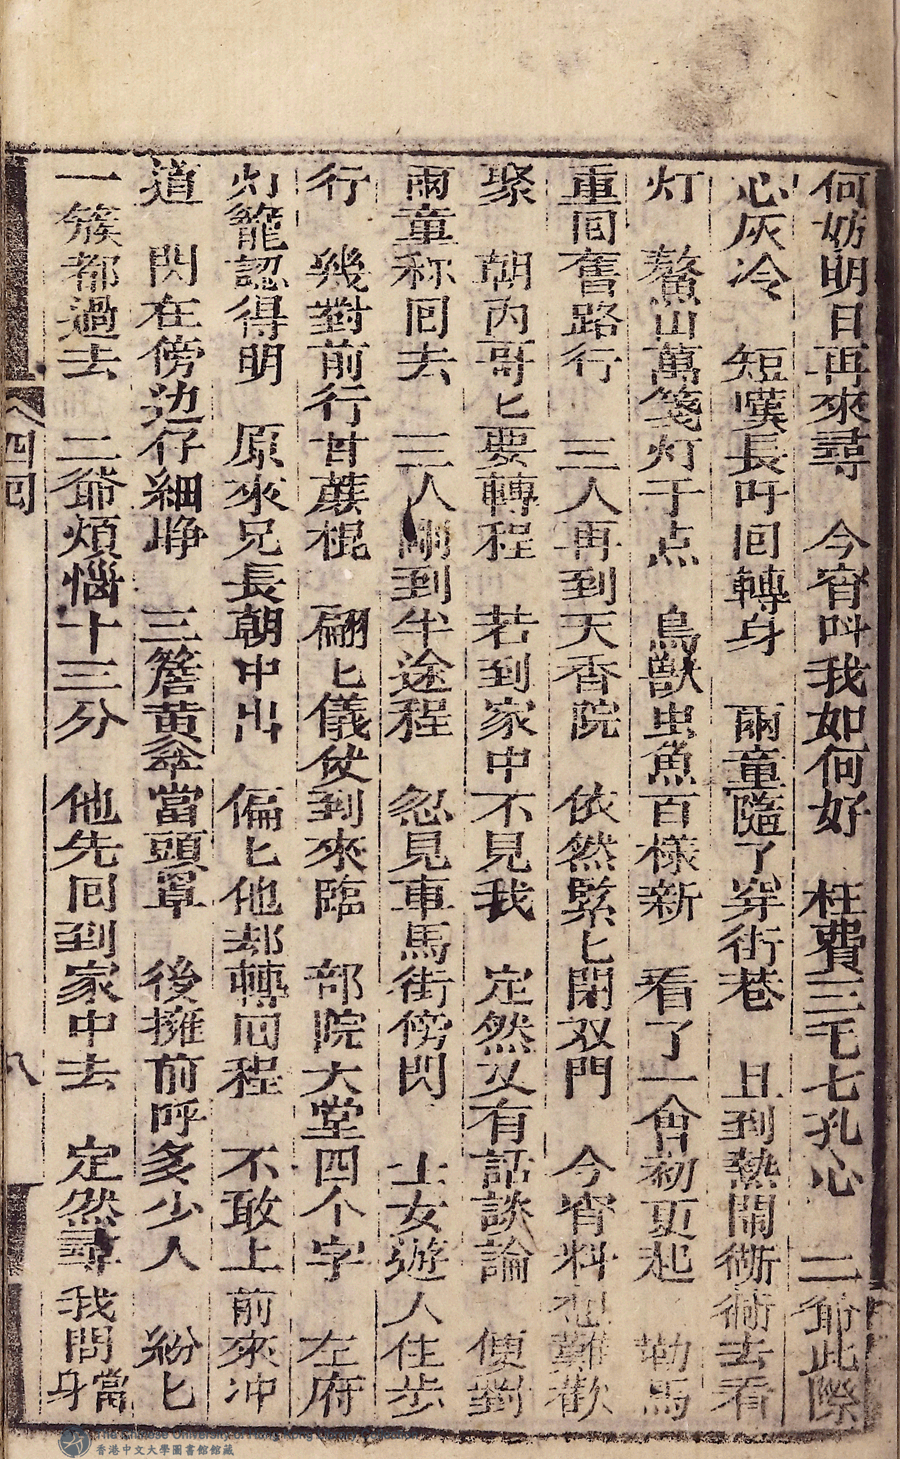 何妨明日再來尋　今宵呌我如何好　枉費三毛七孔心　二爺此際
心灰冷　短嘆長吁囘轉身　兩童隨了穿街巷　且到熱鬧街衢去看
灯　鰲山萬箋灯千点　鳥獸虫魚百樣新　看了一會初更起　勒馬
重囘舊路行　三人再到天香院　依然緊匕閉双門　今宵料想難歡
聚　朝內哥匕要轉程　若到家中不見我　定然又有話談論　便對
兩童称囘去　三人剛到半途程　忽見車馬街傍閃　士女遊人住步
行　幾對前行甘蔗棍　翩匕儀仗到來臨　部院大堂四个字　左府
灯籠認得明　原來兄長朝中出　偏匕他却轉囘程　不敢上前來冲
道　閃在傍边仔細睁　三簷黄傘當頭罩　後擁前呼多少人　紛匕
一簇都過去　二爺煩惱十三分　他先囘到家中去　定然尋我問當身
四囘
八
The Chinese University of Hong Kong Library
香港中文大學圖書館館藏